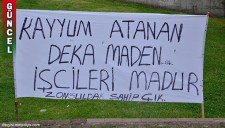 GÜNCEL
KAYYUM ATANAN
DEKA MADEN...
İŞCİLERİ MADUR
ZONGULDAK SAHİP ÇIK..